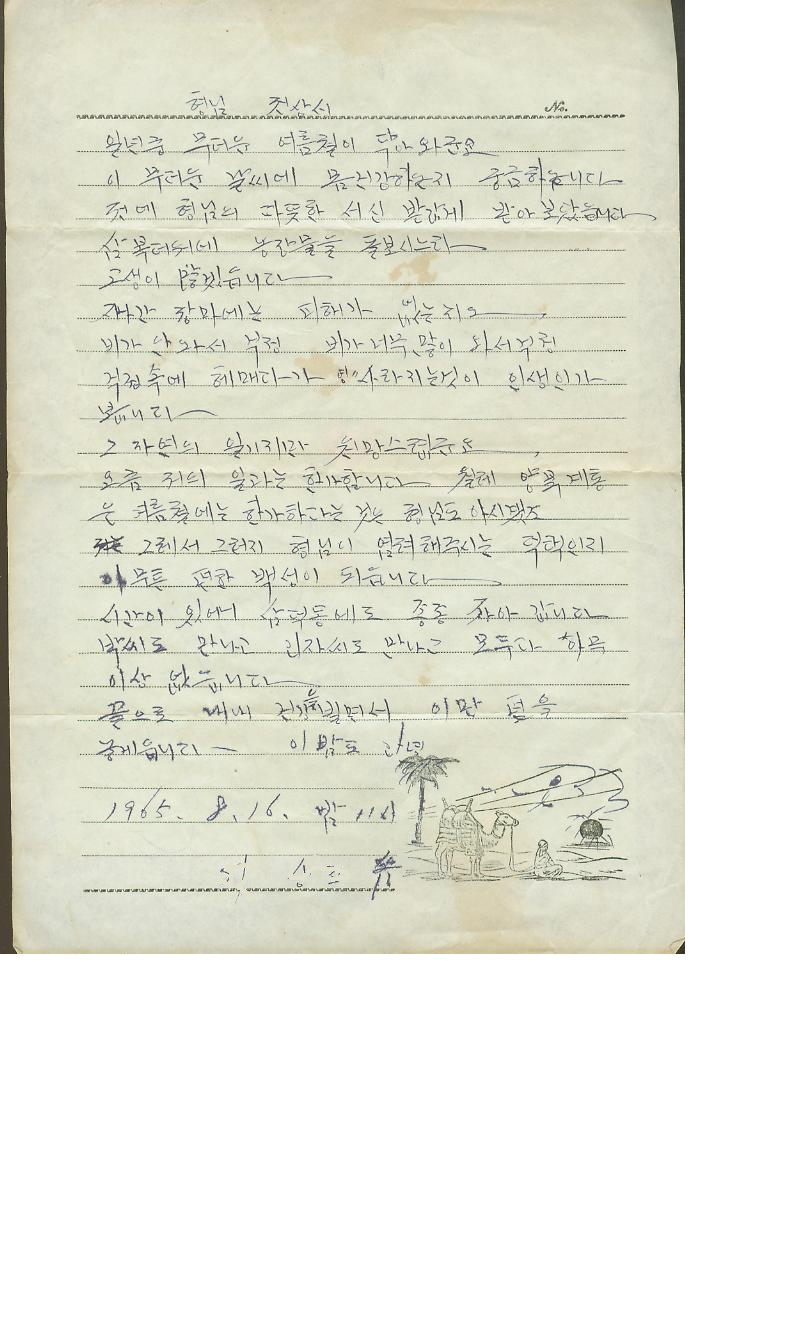 형님 젓상서
No.
일년중 무더운 여름철이 닥아와군요
이 무더운 날씨에 몸건강하는지 궁금하늡니다
젓에 형님의 따뜻한 서신 반갑게 받아 보았습니다
삼복더위에 농작물들 돌보시느라
고생이 많겠읍니다
장마에는 피해가 없는지요
비가 안와서 걱정 비가 너무 많이 와서 걱정
걱정속에 헤매다가 사라지는것이 인생인가
봅니다
그 자연의 일기지만 원망스럽군요
요즘 저의 일과는 한가합니다 양복 계통
은 여름철에는 한가하다는 것은 형님도 아시겠죠
그레서 그런지 형님이 염려해주시는 덕택인지
편한 백성이 되읍니다
시간이 있어 삼덕동에도 종종 찾아 갑니다
박씨도 만나고 만나고 모두다 하목
이상 없읍니다
끝으로 내내 건강을 빌면서 이만 펜을
놓게읍니다 이 밤도 안녕
1965. 8. 16. 밤 11시